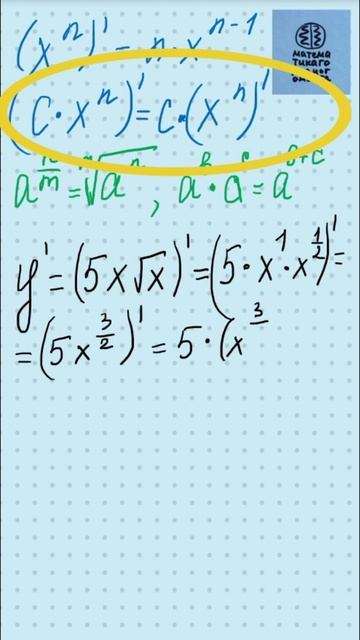 (xⁿ)' = n·xⁿ⁻¹
матема
тикаго
(C·xⁿ)' = C·(xⁿ)'
a^(n/m) = ᵐ√aⁿ, a^b·a^c = a^(b+c)
y' = (5x√x)' = (5·x¹·x^(1/2))' =
= (5x^(3/2))' = 5·(x^3